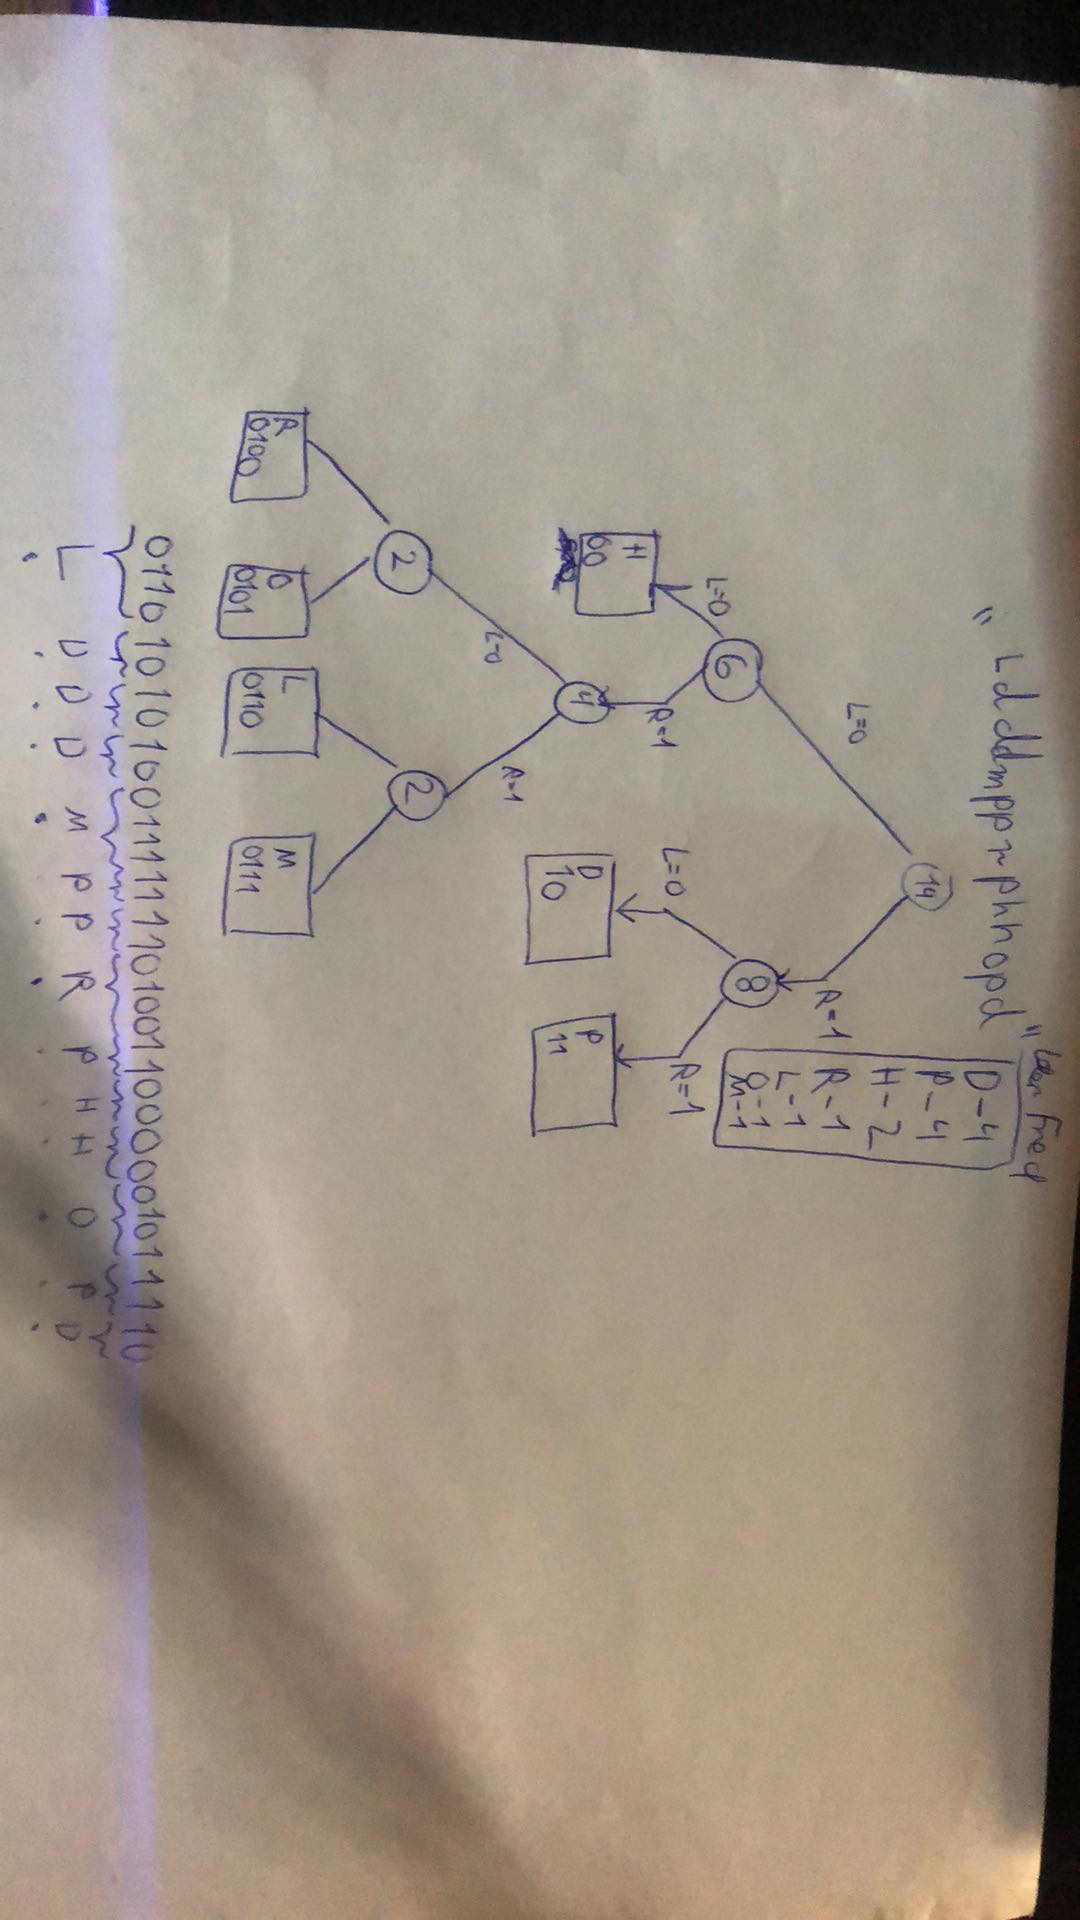 „Ldddmpprphhopd"
Freq
D-4
P-4
H-2
R-1
L-1
O-1
M-1
14
L=0
R=1
6
8
L=0
R=1
L=0
R=1
H
00
4
D
10
P
11
L=0
R=1
2
2
R
0100
O
0101
L
0110
M
0111
011010101001111111010011000001011110
L D D D M P P R P H H O P D